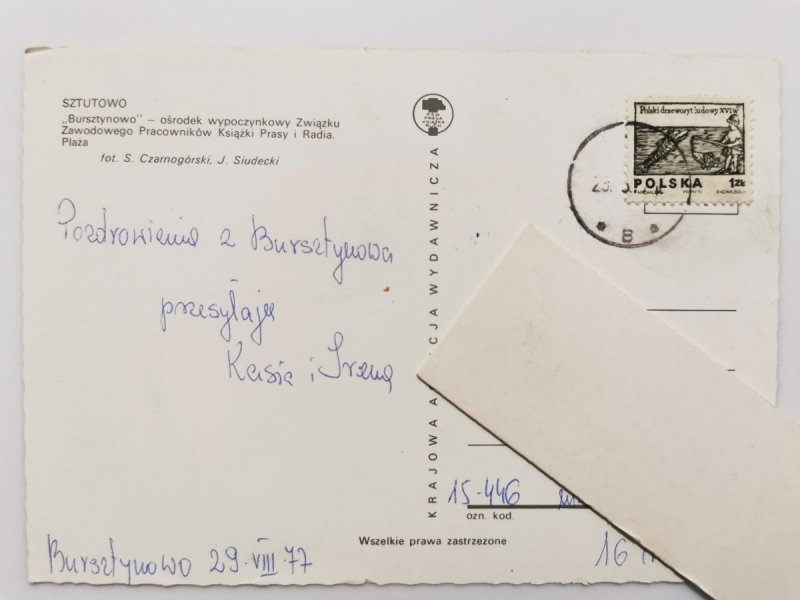 SZTUTOWO
„Bursztynowo” – ośrodek wypoczynkowy Związku
Zawodowego Pracowników Książki Prasy i Radia.
Plaża
fot. S. Czarnogórski, J. Siudecki
Pozdrowienia z Bursztynowa
przesyłają
Kasia i Irena
Bursztynowo 29.VIII.77
KRAJOWA A CJA WYDAWNICZA
Polski drzeworyt ludowy XVI w
POLSKA 1ZŁ
B
15-446
ozn. kod.
16
Wszelkie prawa zastrzeżone